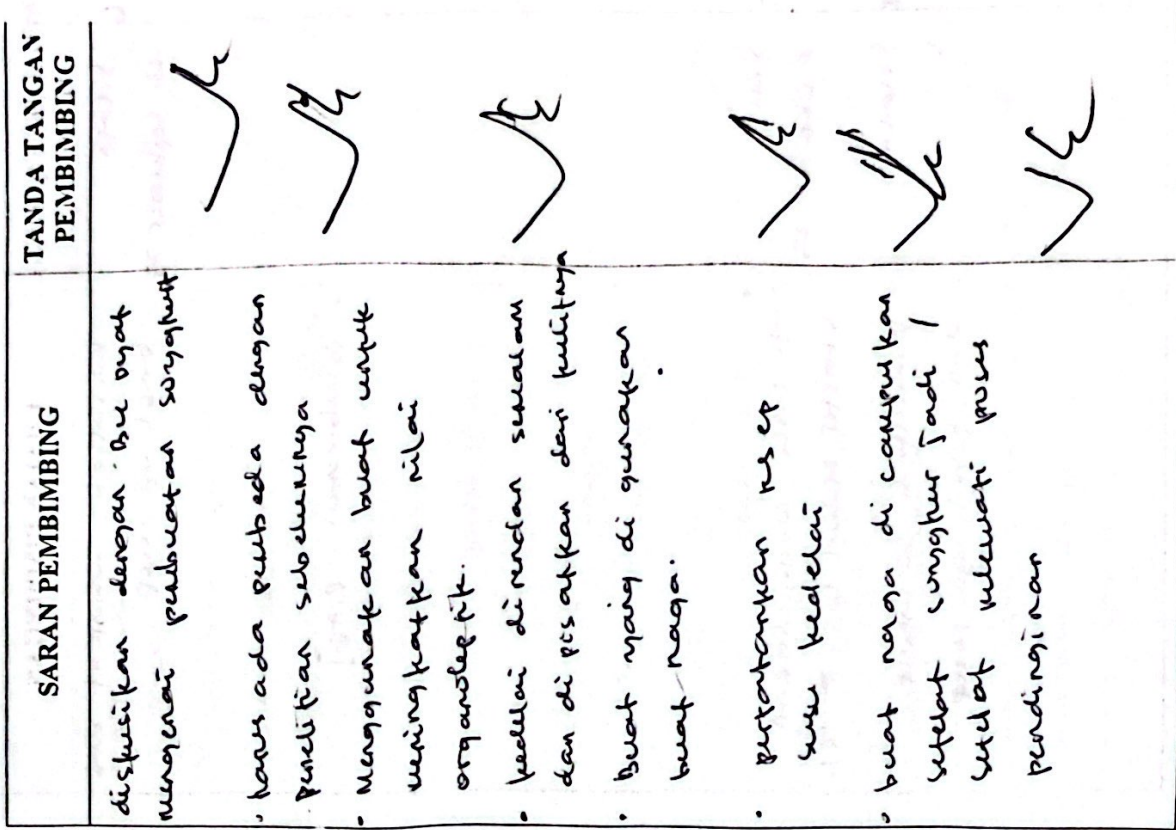 SARAN PEMBIMBING
TANDA TANGAN
PEMBIMBING
diskusikan dengan Bu
mengenai pembuatan soyghurt
• harus ada pembeda dengan
penelitian sebelumnya
• Menggunakan buah untuk
meningkatkan nilai
organoleptik.
• kedelai direndam semalam
dan di pisahkan dari kulitnya
• Buah yang di gunakan
buah naga.
• pertahankan resep
susu kedelai
• buah naga di campurkan
setelah soyghur jadi /
setelah melewati proses
pendinginan